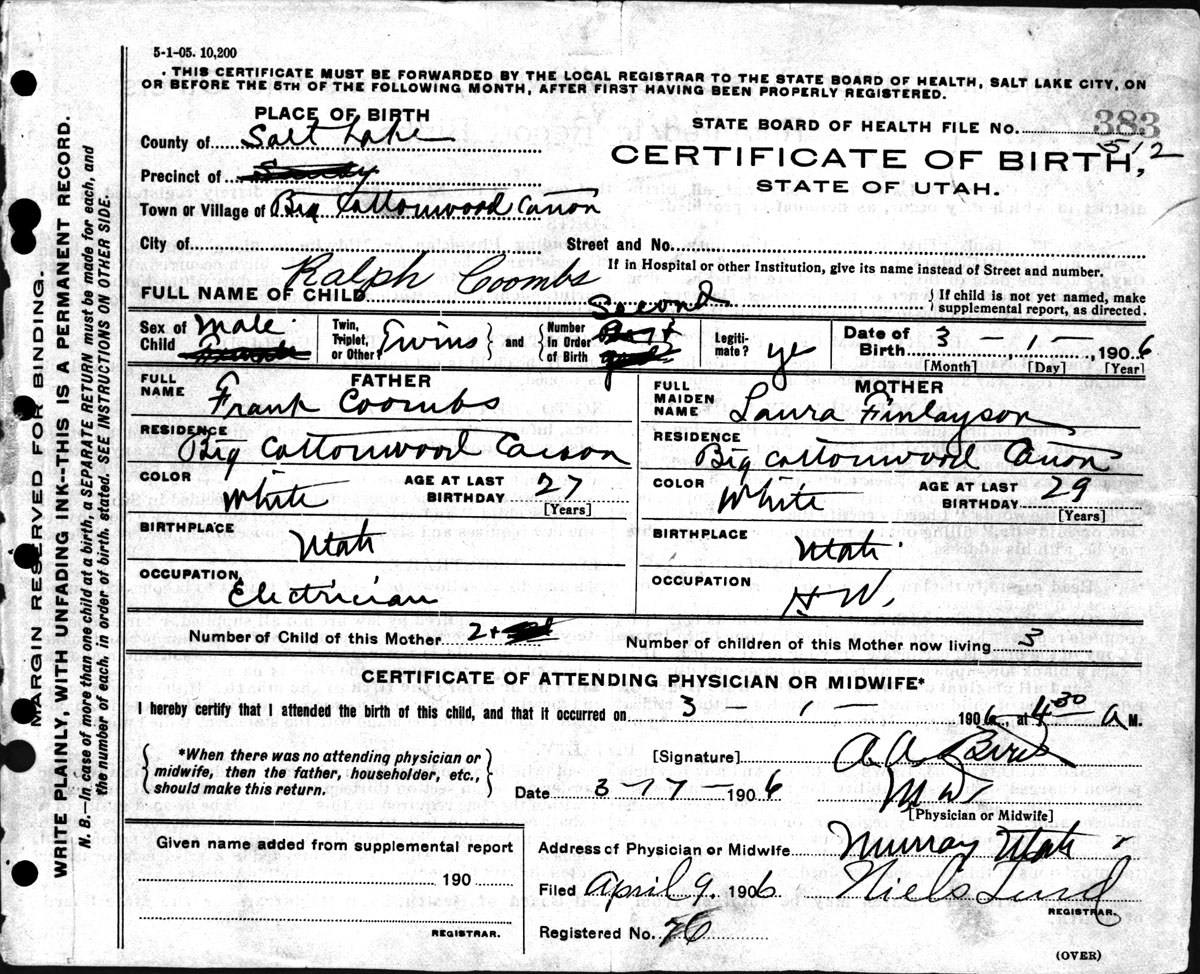 5-1-05. 10,200
THIS CERTIFICATE MUST BE FORWARDED BY THE LOCAL REGISTRAR TO THE STATE BOARD OF HEALTH, SALT LAKE CITY, ON
OR BEFORE THE 5TH OF THE FOLLOWING MONTH, AFTER FIRST HAVING BEEN PROPERLY REGISTERED.
PLACE OF BIRTH
County of Salt Lake
Precinct of Sandy
Town or Village of Big Cottonwood Cañon
City of
STATE BOARD OF HEALTH FILE NO. 383
512
CERTIFICATE OF BIRTH,
STATE OF UTAH.
Street and No.
If in Hospital or other Institution, give its name instead of Street and number.
FULL NAME OF CHILD Ralph Coombs
{If child is not yet named, make supplemental report, as directed.
Sex of Child Male
Twin, Triplet, or Other? Twins } and { Number in Order of Birth Second
Legitimate? ye
Date of Birth 3 - 1 - 1906
[Month] [Day] [Year]
FATHER
FULL NAME Frank Coombs
RESIDENCE Big Cottonwood Canon
COLOR White AGE AT LAST BIRTHDAY 27
[Years]
BIRTHPLACE Utah
OCCUPATION Electrician
MOTHER
FULL MAIDEN NAME Laura Finlayson
RESIDENCE Big Cottonwood Cañon
COLOR White AGE AT LAST BIRTHDAY 29
[Years]
BIRTHPLACE Utah
OCCUPATION H W.
Number of Child of this Mother 2+
Number of children of this Mother now living 3
CERTIFICATE OF ATTENDING PHYSICIAN OR MIDWIFE*
I hereby certify that I attended the birth of this child, and that it occurred on 3 - 1 - 1906, at 4 30 A M.
{*When there was no attending physician or
midwife, then the father, householder, etc.,
should make this return.}
[Signature] A A
Date 3-17-1906
[Physician or Midwife]
Address of Physician or Midwife Murray Utah
Filed April 9 1906 Niels Lind
REGISTRAR.
Registered No. 26
Given name added from supplemental report
190
REGISTRAR.
(OVER)
MARGIN RESERVED FOR BINDING.
WRITE PLAINLY, WITH UNFADING INK--THIS IS A PERMANENT RECORD.
N. B.--In case of more than one child at a birth, a SEPARATE RETURN must be made for each, and
the number of each, in order of birth, stated. SEE INSTRUCTIONS ON OTHER SIDE.